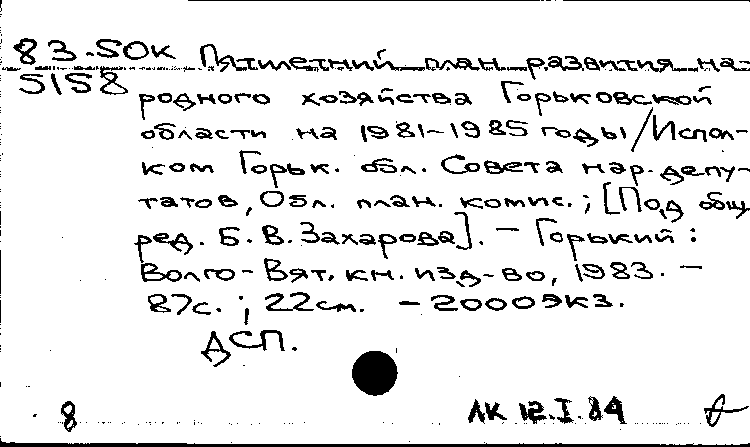 83.SOK Пятилетний план развития на-
5158 родного хозяйства Горьковской
области на 1981-1985 годы/Испол-
ком Горьк. обл. Совета нар. депу-
татов, Обл. план. комис.; [Под общ.
ред. Б. В. Захарова]. – Горький :
Волго-Вят. кн. изд-во, 1983. –
87с. ; 22см. – 2000экз.
ДСП.
8 ЛК 12.I.84